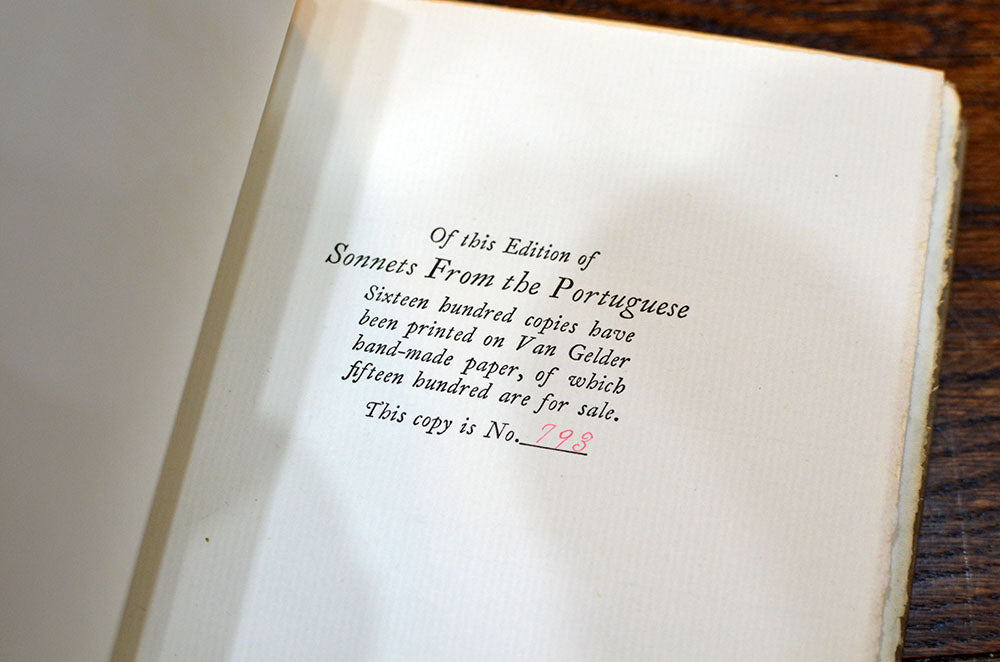 Of this Edition of
Sonnets From the Portuguese
Sixteen hundred copies have
been printed on Van Gelder
hand-made paper, of which
fifteen hundred are for sale.
This copy is No. 793